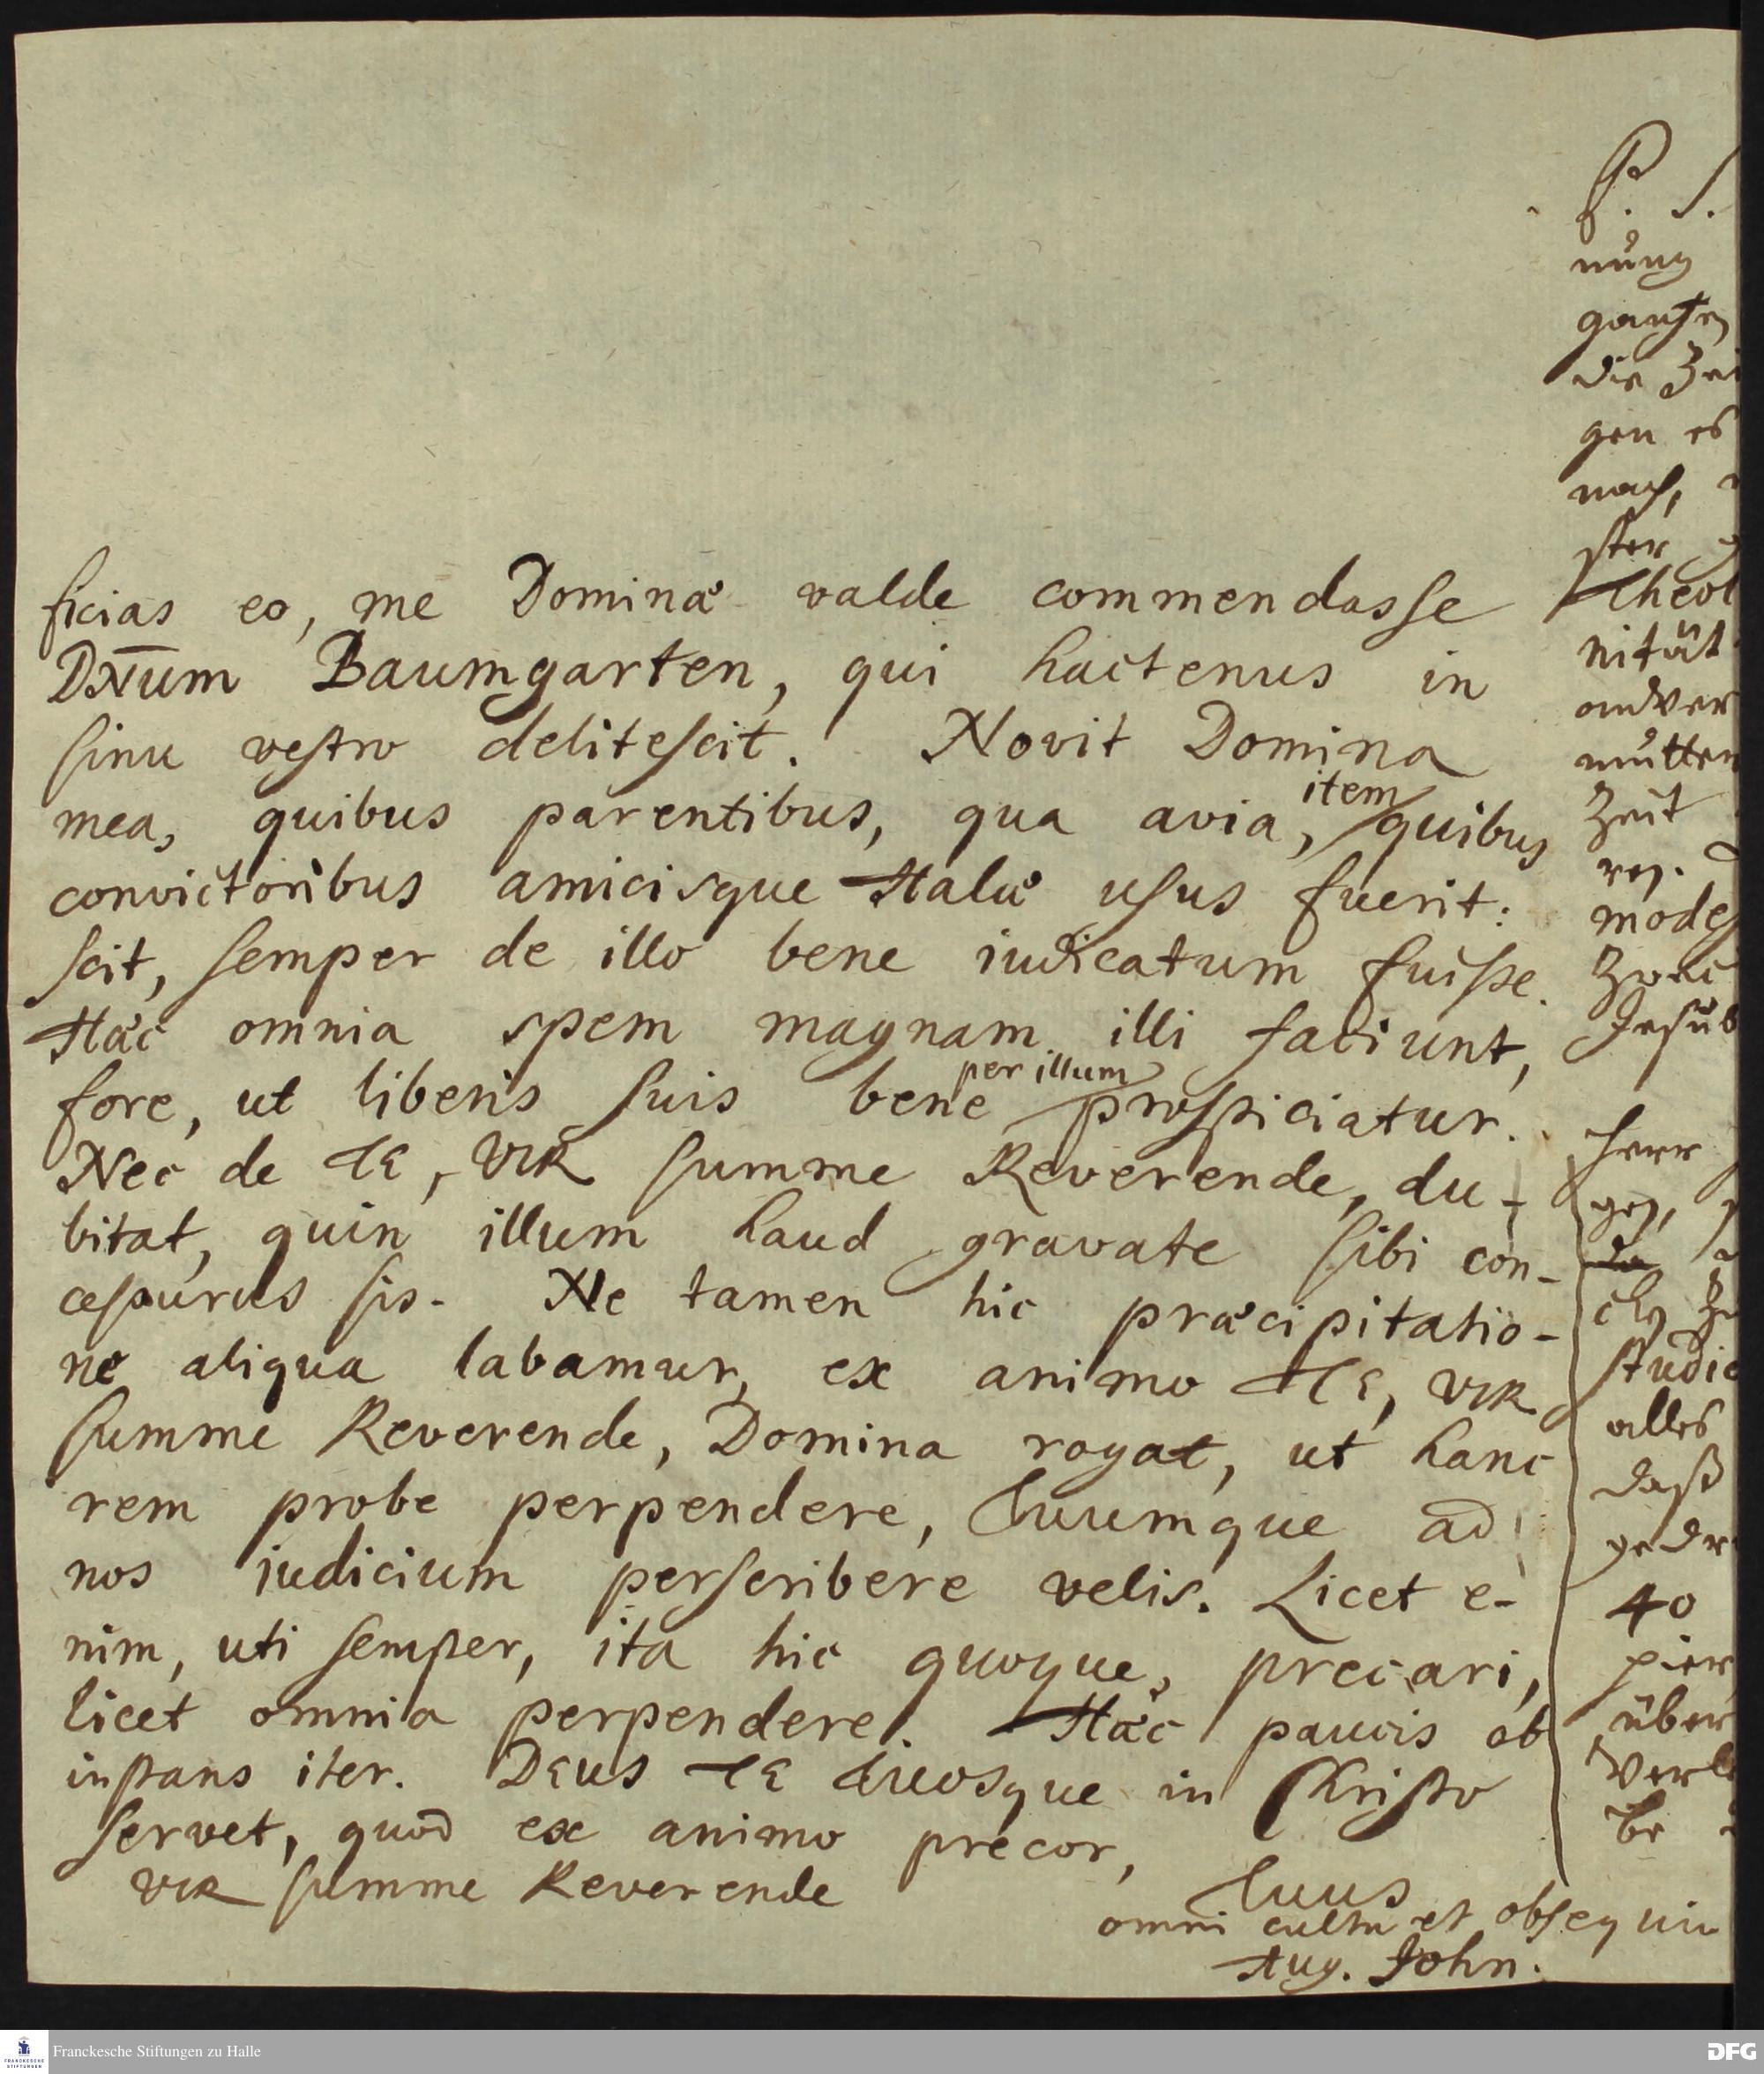 ficias eo, me Dominæ valde commendasse
DN̅um Baumgarten, qui hactenus in
sinu vestro delitescit. Novit Domina
mea, quibus parentibus, qua avia, item quibus
convictoribus amicisque Halæ usus fuerit:
scit, semper de illo bene iudicatum fuisse.
Hæc omnia spem magnam illi faciunt,
fore, ut liberis suis bene per illum prospiciatur.
Nec de TE, VIR summe Reverende, du-
bitat, quin illum haud gravate sibi con-
cessurus sis. Ne tamen hic præcipitatio-
ne aliqua labamur, ex animo TE, VIR
summe Reverende, Domina rogat, ut hanc
rem probe perpendere, Tuumque ad
nos iudicium perscribere velis. Licet e-
nim, uti semper, ita hic quoque, precari,
licet omnia perpendere. Hæc paucis ob
instans iter. DEUS TE Tuosque in Christo
servet, quod ex animo precor,
VIR summe Reverende
Tuus
omni cultu et obsequio
Aug. John.
P. S.
nung
gantzen
die Zei
gen es
nach,
ster
Theol
nität
andver
mutten
Zeit
modes
Zwei
Jesus
Herr
ges,
da
ch Zu
studie
alles
daß
gedr
40
pier
über
Verl
be
Franckesche Stiftungen zu Halle
FRANCKESCHE
STIFTUNGEN
DFG